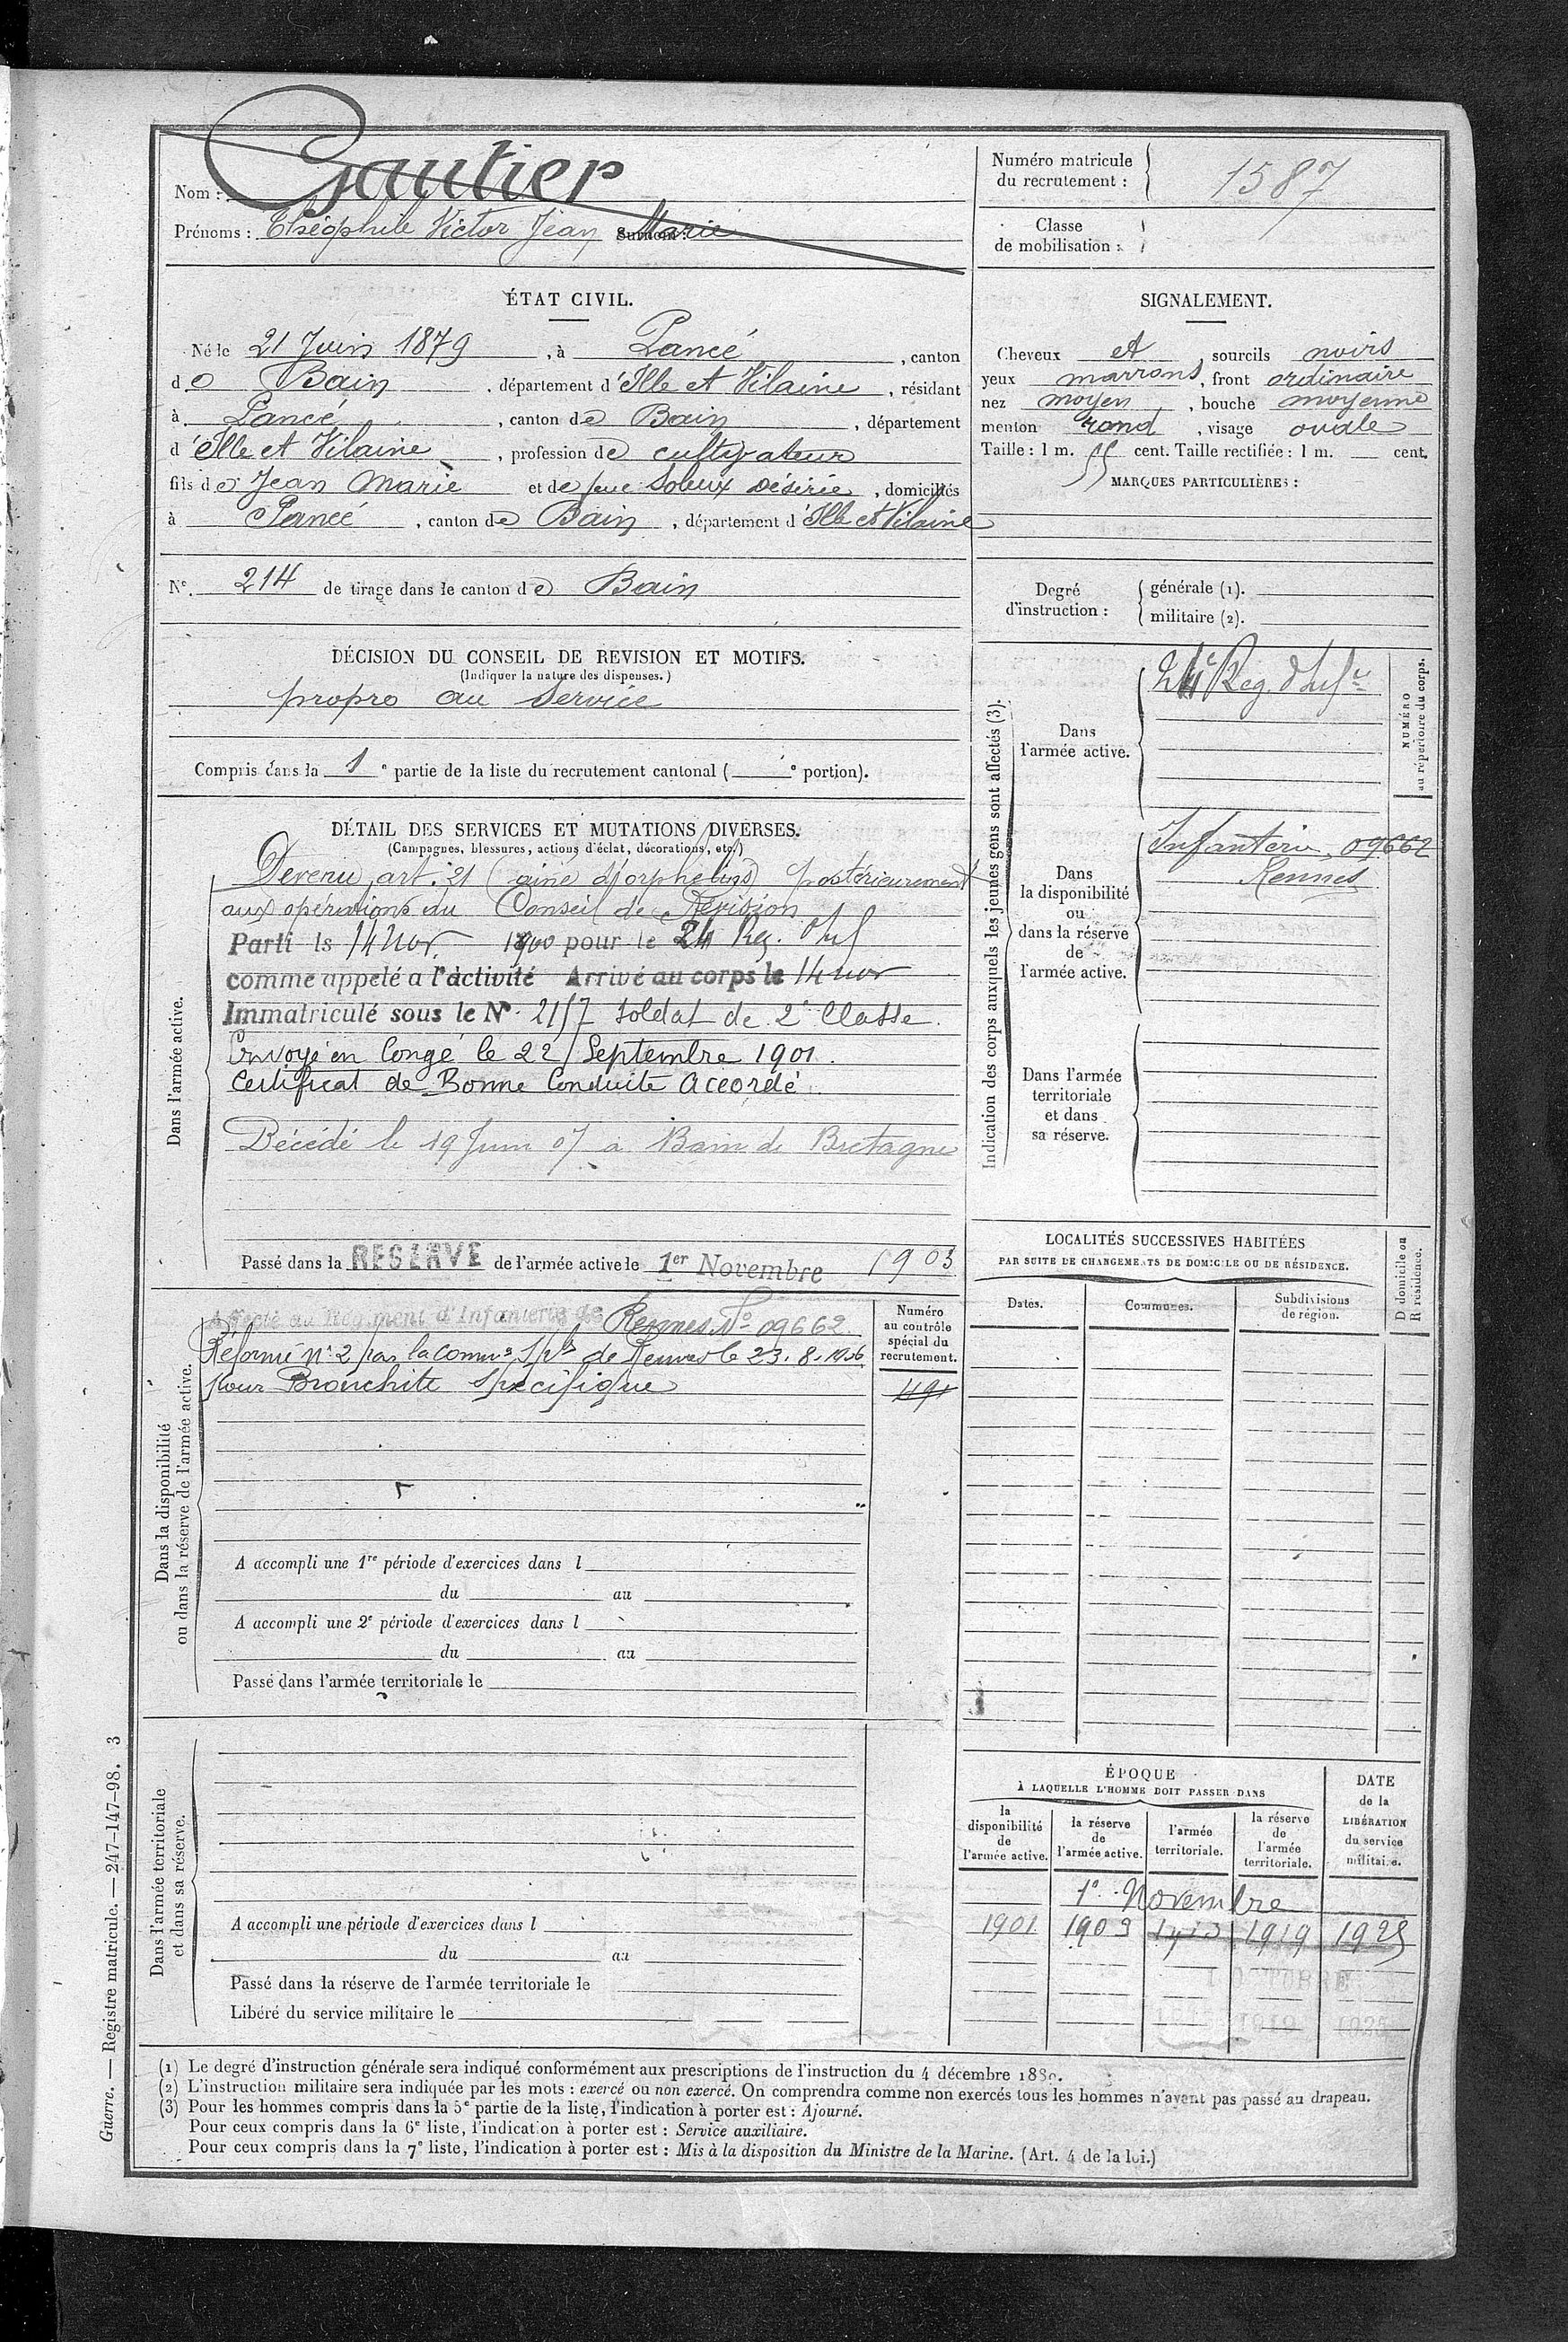 Nom : Gautier
Prénoms : Théophile Victor Jean Marie Surnom :
Numéro matricule du recrutement : 1587
Classe de mobilisation :
ÉTAT CIVIL.
Né le 21 Juin 1879, à Pancé, canton
de Bain, département d'Ille et Vilaine, résidant
à Pancé, canton de Bain, département
d'Ille et Vilaine, profession de cultivateur
fils de Jean Marie et de feue Soleux Désirée, domiciliés
à Pancé, canton de Bain, département d'Ille et Vilaine
N° 214 de tirage dans le canton de Bain
SIGNALEMENT.
Cheveux et, sourcils noirs
yeux marrons, front ordinaire
nez moyen, bouche moyenne
menton rond, visage ovale
Taille : 1 m. 55 cent. Taille rectifiée : 1 m. — cent.
MARQUES PARTICULIÈRES :
Degré d'instruction : générale (1).
militaire (2).
DÉCISION DU CONSEIL DE REVISION ET MOTIFS.
(Indiquer la nature des dispenses.)
propre au service
Compris dans la 1e partie de la liste du recrutement cantonal ( e portion).
DÉTAIL DES SERVICES ET MUTATIONS DIVERSES.
(Campagnes, blessures, actions d'éclat, décorations, etc.)
Dans l'armée active.
Devenu art. 21 (ainé d'orphelins) postérieurement
aux opérations du Conseil de Révision
Parti le 14 Nov. 1900 pour le 24 Reg. d'Inf
comme appelé a l'activité Arrivé au corps le 14 nov
Immatriculé sous le N° 2157 Soldat de 2e Classe.
Envoyé en Congé le 22 Septembre 1901.
Certificat de Bonne Conduite Accordé.
Décédé le 19 Juin 07 a Bain de Bretagne
Passé dans la RESERVE de l'armée active le 1er Novembre 1903
Indication des corps auxquels les jeunes gens sont affectés (3).
NUMÉRO au répertoire du corps.
Dans l'armée active.
24e Reg. d'Infie
Dans la disponibilité ou dans la réserve de l'armée active.
Infanterie, 09662
Rennes
Dans l'armée territoriale et dans sa réserve.
Dans la disponibilité ou dans la réserve de l'armée active.
Affecté au Régiment d'Infanterie de Rennes No 09662
Réformé n° 2 par la Comon Sple de Rennes le 23.8.1906
pour Bronchite Spécifique
Numéro au contrôle spécial du recrutement.
491
A accompli une 1re période d'exercices dans l
du au
A accompli une 2e période d'exercices dans l
du au
Passé dans l'armée territoriale le
LOCALITÉS SUCCESSIVES HABITÉES
PAR SUITE DE CHANGEMENTS DE DOMICILE OU DE RÉSIDENCE.
Dates. Communes. Subdivisions de région.
D domicile ou R résidence.
Dans l'armée territoriale et dans sa réserve.
A accompli une période d'exercices dans l
du au
Passé dans la réserve de l'armée territoriale le
Libéré du service militaire le
ÉPOQUE
À LAQUELLE L'HOMME DOIT PASSER DANS
la disponibilité de l'armée active. la réserve de l'armée active. l'armée territoriale. la réserve de l'armée territoriale.
DATE de la LIBÉRATION du service militaire.
1er Novembre
1901 1903 1913 1919 1925
1 OCTOBRE
1919 1925
(1) Le degré d'instruction générale sera indiqué conformément aux prescriptions de l'instruction du 4 décembre 1889.
(2) L'instruction militaire sera indiquée par les mots : exercé ou non exercé. On comprendra comme non exercés tous les hommes n'ayant pas passé au drapeau.
(3) Pour les hommes compris dans la 5e partie de la liste, l'indication à porter est : Ajourné.
Pour ceux compris dans la 6e liste, l'indication à porter est : Service auxiliaire.
Pour ceux compris dans la 7e liste, l'indication à porter est : Mis à la disposition du Ministre de la Marine. (Art. 4 de la loi.)
Guerre. — Registre matricule. — 247-147-98. 3